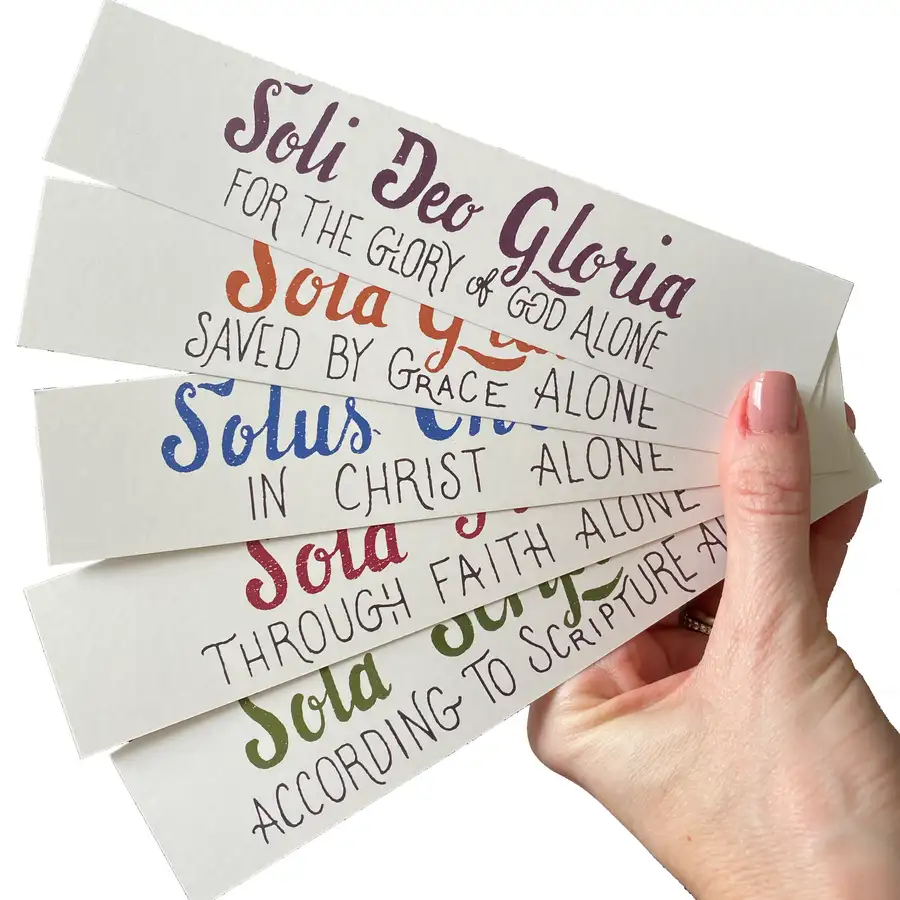 Soli Deo Gloria
FOR THE GLORY of GOD ALONE
Sola
SAVED BY GRACE ALONE
Solus
IN CHRIST ALONE
Sola
THROUGH FAITH ALONE
Sola
ACCORDING TO SCRIPTURE